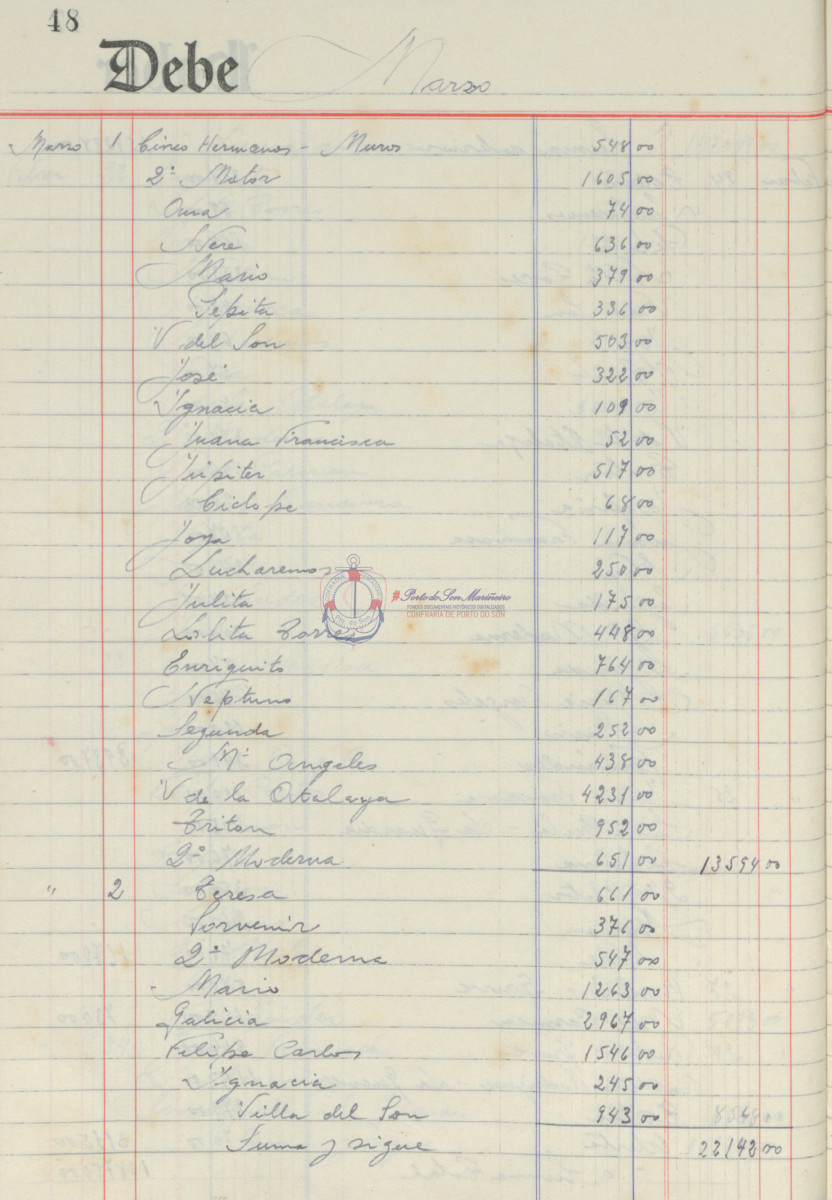 48
Debe Marzo
Marzo 1 Cinco Hermanos - Muros 548 00
2º Motor 1605 00
Ana 74 00
Nere 636 00
Mario 379 00
Pepita 336 00
V del Son 503 00
José 322 00
Ignacia 109 00
Juana Francisca 52 00
Jupiter 517 00
Ciclope 68 00
Joya 117 00
Lucharemos 250 00
Julita 175 00
Lolita Torres 448 00
Enriquito 764 00
Neptuno 167 00
Segunda 252 00
Mª Angeles 438 00
V de la Atalaya 4231 00
Triton 952 00
2ª Moderna 651 00 13594 00
" 2 Teresa 661 00
Sorvenir 376 00
2ª Moderna 547 00
Mario 1263 00
Galicia 2967 00
Felipe Carlos 1546 00
Ignacia 245 00
Villa del Son 943 00
Suma y sigue 22142 00
#Porto do Son Mariñeiro
FONDOS DOCUMENTAIS HISTÓRICOS DIXITALIZADOS
CONFRARÍA DE PORTO DO SON